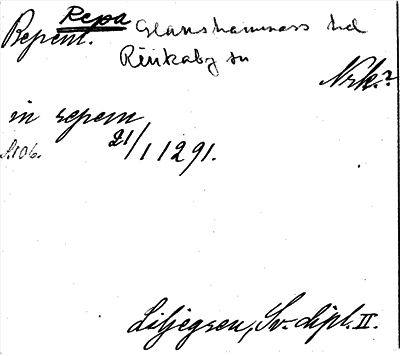 Repa
Repent. Glanshammars hd
Rinkaby sn
Nrk.?
in repem
s. 106. 21/1 1291.
Liljegren, Sv. dipl. II.